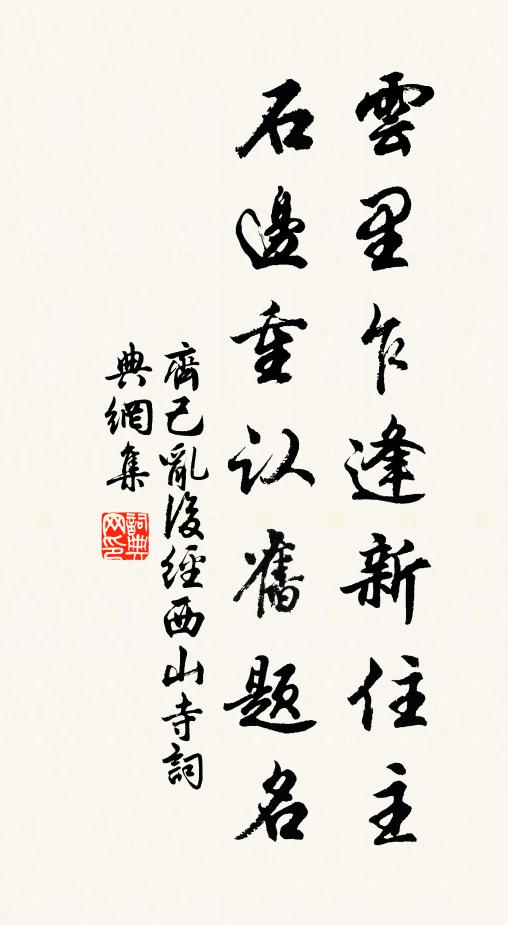 雲里乍逢新住主
石邊重认舊題名
齊己亂後經西山寺詞
典網集
詞典
网印